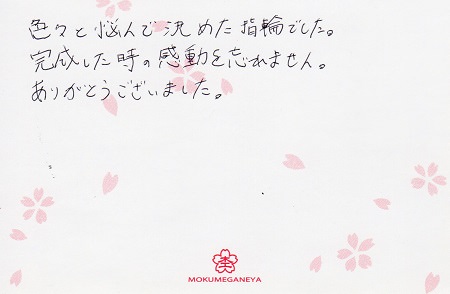 色々と悩んで決めた指輪でした。
完成した時の感動を忘れません。
ありがとうございました。
MOKUMEGANEYA